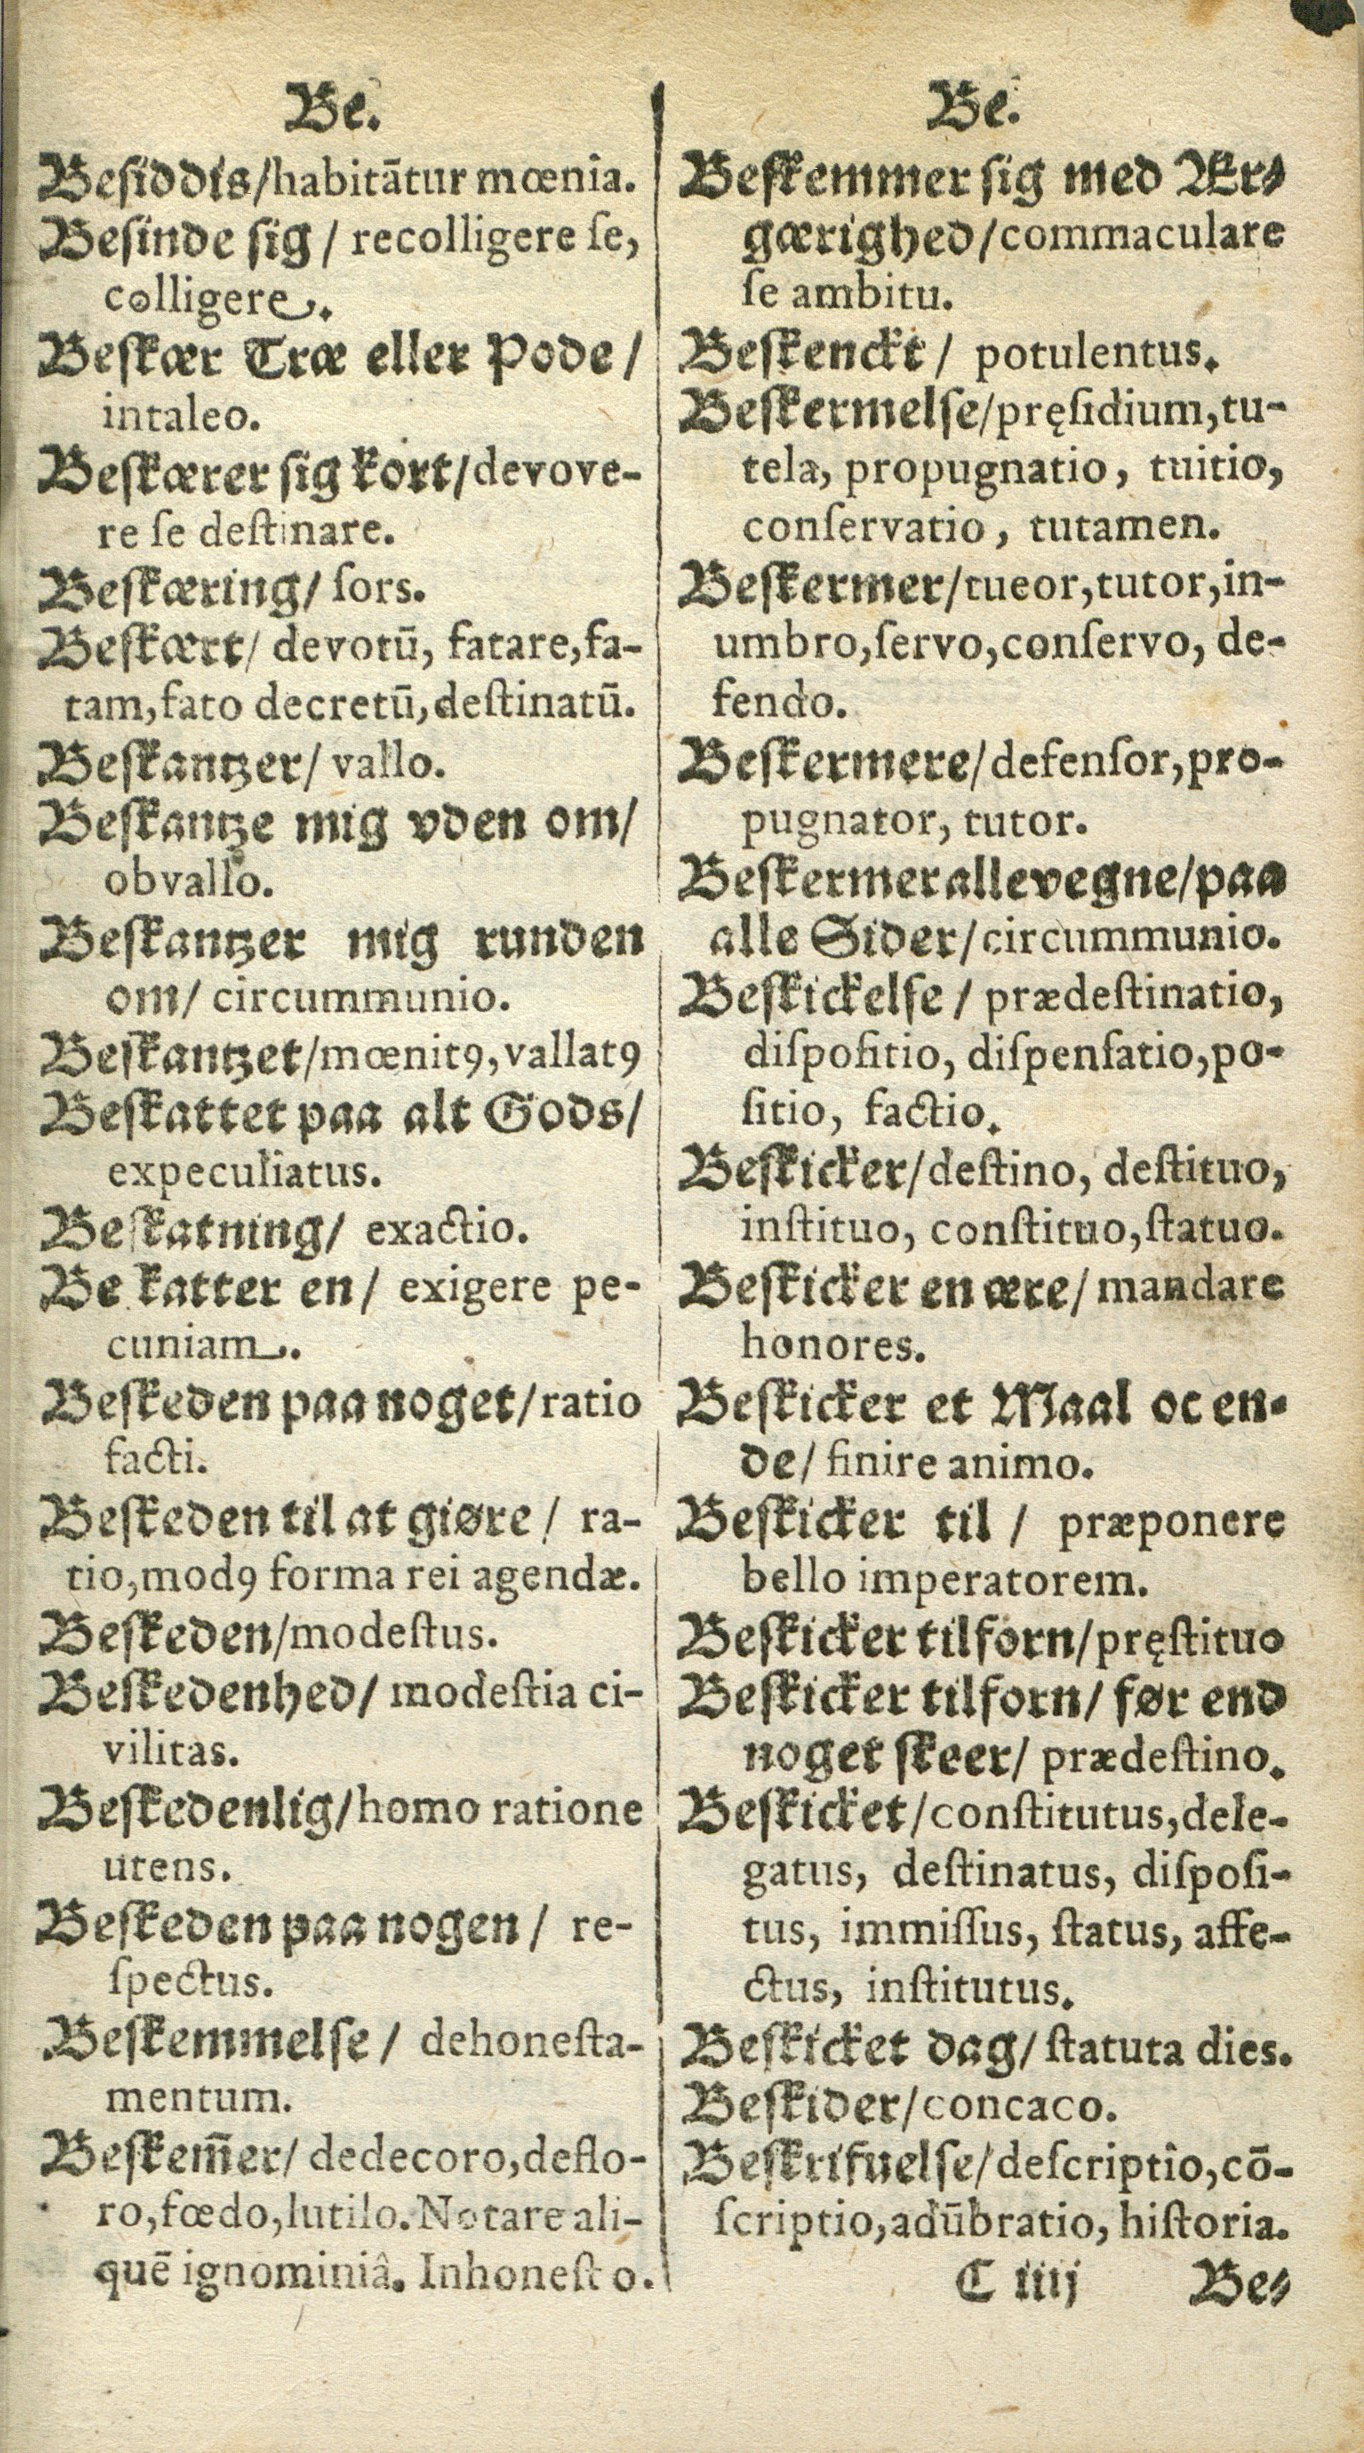 Be.
Beſiddis/habitātur mœnia.
Beſinde ſig/ recolligere ſe,
colligere.
Beſkær Træ eller Pode/
intaleo.
Beſkærer ſig kort/devove-
re ſe deſtinare.
Beſkæring/ ſors.
Beſkært/ devotū, fatare,fa-
tam,fato decretū,deſtinatū.
Beſkantzer/ vallo.
Beſkantze mig vden om/
obvallo.
Beſkantzer mig runden
om/ circummunio.
Beſkantzet/mœnitꝰ,vallatꝰ
Beſkattet paa alt Gods/
expeculiatus.
Beſkatning/ exactio.
Be katter en/ exigere pe-
cuniam.
Beſkeden paa noget/ratio
facti.
Beſkeden til at giøre/ ra-
tio,modꝰ forma rei agendæ.
Beſkeden/modeſtus.
Beſkedenhed/ modeſtia ci-
vilitas.
Beſkedenlig/homo ratione
utens.
Beſkeden paa nogen/ re-
ſpectus.
Beſkemmelſe/ dehoneſta-
mentum.
Beſkem̄er/ dedecoro,deflo-
ro,fœdo,lutilo.Notare ali-
quē ignominiâ. Inhoneſto.
Be.
Beſkemmer ſig med Ær⸗
gærighed/commaculare
ſe ambitu.
Beſkenckt/ potulentus.
Beſkermelſe/pręſidium,tu-
tela, propugnatio, tuitio,
conſervatio, tutamen.
Beſkermer/tueor,tutor,in-
umbro,ſervo,conſervo, de-
fendo.
Beſkermere/defenſor,pro-
pugnator, tutor.
Beſkermer allevegne/paa
alle Sider/circummunio.
Beſkickelſe/ prædeſtinatio,
diſpoſitio, diſpenſatio,po-
ſitio, factio.
Beſkicker/deſtino, deſtituo,
inſtituo, conſtituo,ſtatuo.
Beſkicker en ære/mandare
honores.
Beſkicker et Maal oc en⸗
de/ finire animo.
Beſkicker til/ præponere
bello imperatorem.
Beſkicker tilforn/pręſtituo
Beſkicker tilforn/ før end
noget ſkeer/ prædeſtino.
Beſkicket/conſtitutus,dele-
gatus, deſtinatus, diſpoſi-
tus, immiſſus, ſtatus, affe-
ctus, inſtitutus.
Beſkicket dag/ſtatuta dies.
Beſkider/concaco.
Beſkrifuelſe/deſcriptio,cō-
ſcriptio,adūbratio, hiſtoria.
C iiij Be⸗